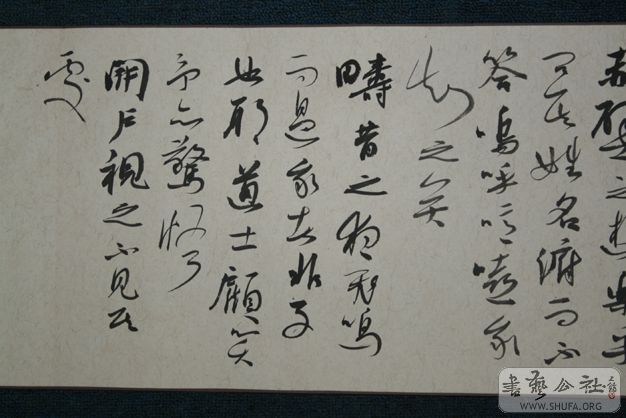 赤壁之遊樂乎
問其姓名俯而不
答嗚呼噫嘻我
知之矣
疇昔之夜飛鳴
而過我者非子
也耶道士顧笑
予亦驚悟
開戶視之不見其
處
書藝公社
WWW.SHUFA.ORG